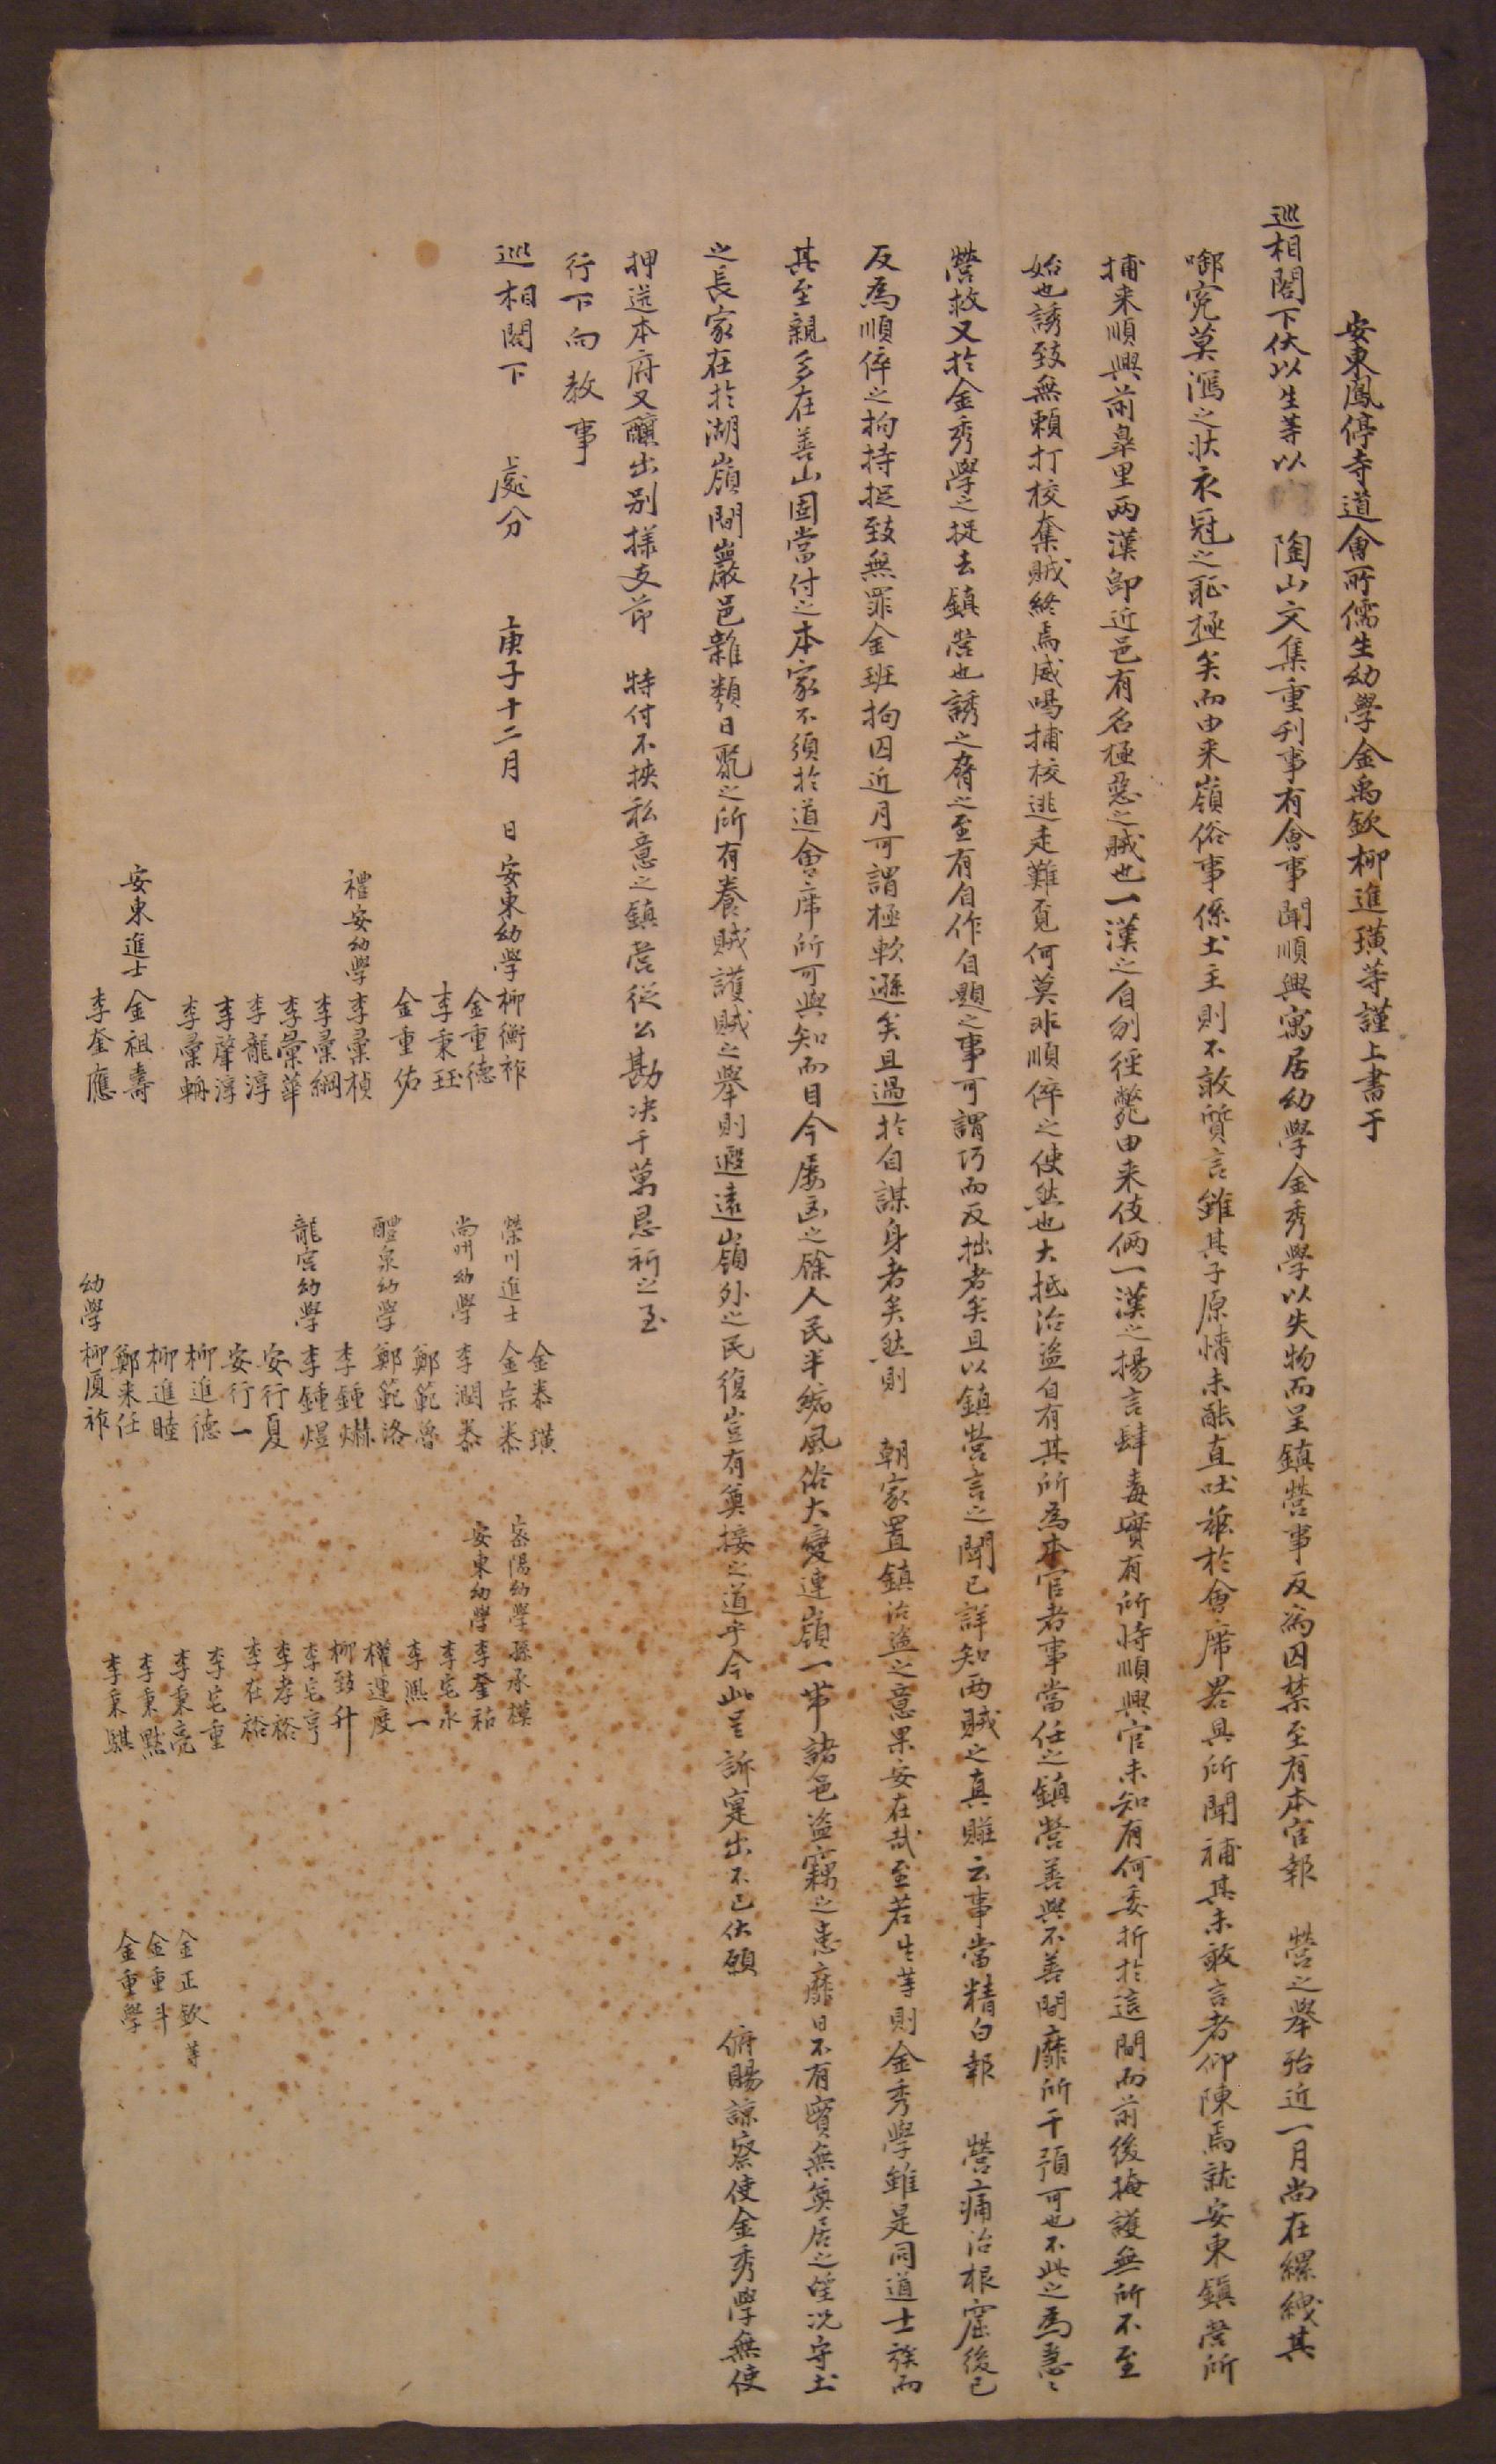 安東鳳停寺道會所儒生幼學金禹欽柳進璜等謹上書于
巡相閤下伏以生等以 陶山文集重刊事有會事聞順興寓居幼學金秀學以失物而呈鎮營事反爲囚禁至有本官報 營之擧殆近一月尚在縲絏其
啣寃莫瀉之狀衣冠之耻極矣而由来嶺俗事係土主則不敢質言雖其子原情未敢直吐玆於會席畧具所聞補其未敢言者仰陳焉玆安東鎮營所
捕来順興前皐里兩漢卽近邑有名極惡之賊也一漢之自刎徑斃由来伎倆一漢之揚言肆毒實有所恃順興官未知有何委折於這間而前後掩護無所不至
始也誘致無賴打校奪賊終焉威喝捕校逃走難覓何莫非順倅之使然也大抵治盗自有其所爲本官者事當任之鎮營善與不善間靡所干預可也不此之爲急〻
營救又於金秀學之捉去鎮營也誘之脅之至有自作自題之事可謂巧而反拙者矣且以鎮營言之聞已詳知兩賊之真贓云事當精白報 營痛治根窟後已
反爲順倅之拘持捉致無罪金班拘囚近月可謂極軟遜矣且過於自謀身者矣然則 朝家置鎮治盗之意果安在哉至若生等則金秀學雖是同道士族而
其至親多在善山固當付之本家不須於道會席所可與知而目今屡凶之餘人民半缩風俗大變連嶺一帶諸邑盗竊之患靡日不有實無奠居之望况守土
之長家在於湖嶺間巖邑雜類日聚之所有養賊護賊之擧則遐遠嶺外之民復豈有奠接之道乎今此呈訴寔出不已伏願 俯賜諒察使金秀學無使
押送本府又釀出别様支節 特付不挾私意之鎮營從公勘决千萬恳祈之至
行下向教事
巡相閤下 處分 庚子十二月 日
安東幼學柳衡祚
金重德
李秉珏
金重佑
禮安幼學李彙楨
李彙綱
李彙華
李龍淳
李肇淳
李彙輈
安東進士金祖壽
李奎應
金泰璜
榮川進士金宗泰
尙州幼學李潤泰
鄭範魯
醴泉幼學鄭範洛
李鍾爀
龍宮幼學李鍾煜
安行夏
安行一
柳進德
柳進睦
鄭来任
幼學柳厦祚
密陽幼學孫承模
安東幼學李奎祜
李宅永
李凞一
權連度
柳致升
李宅亨
李孝裕
李在裕
李宅重
李秉亮
李秉點
李秉騏
金正欽等
金重斗
金重學